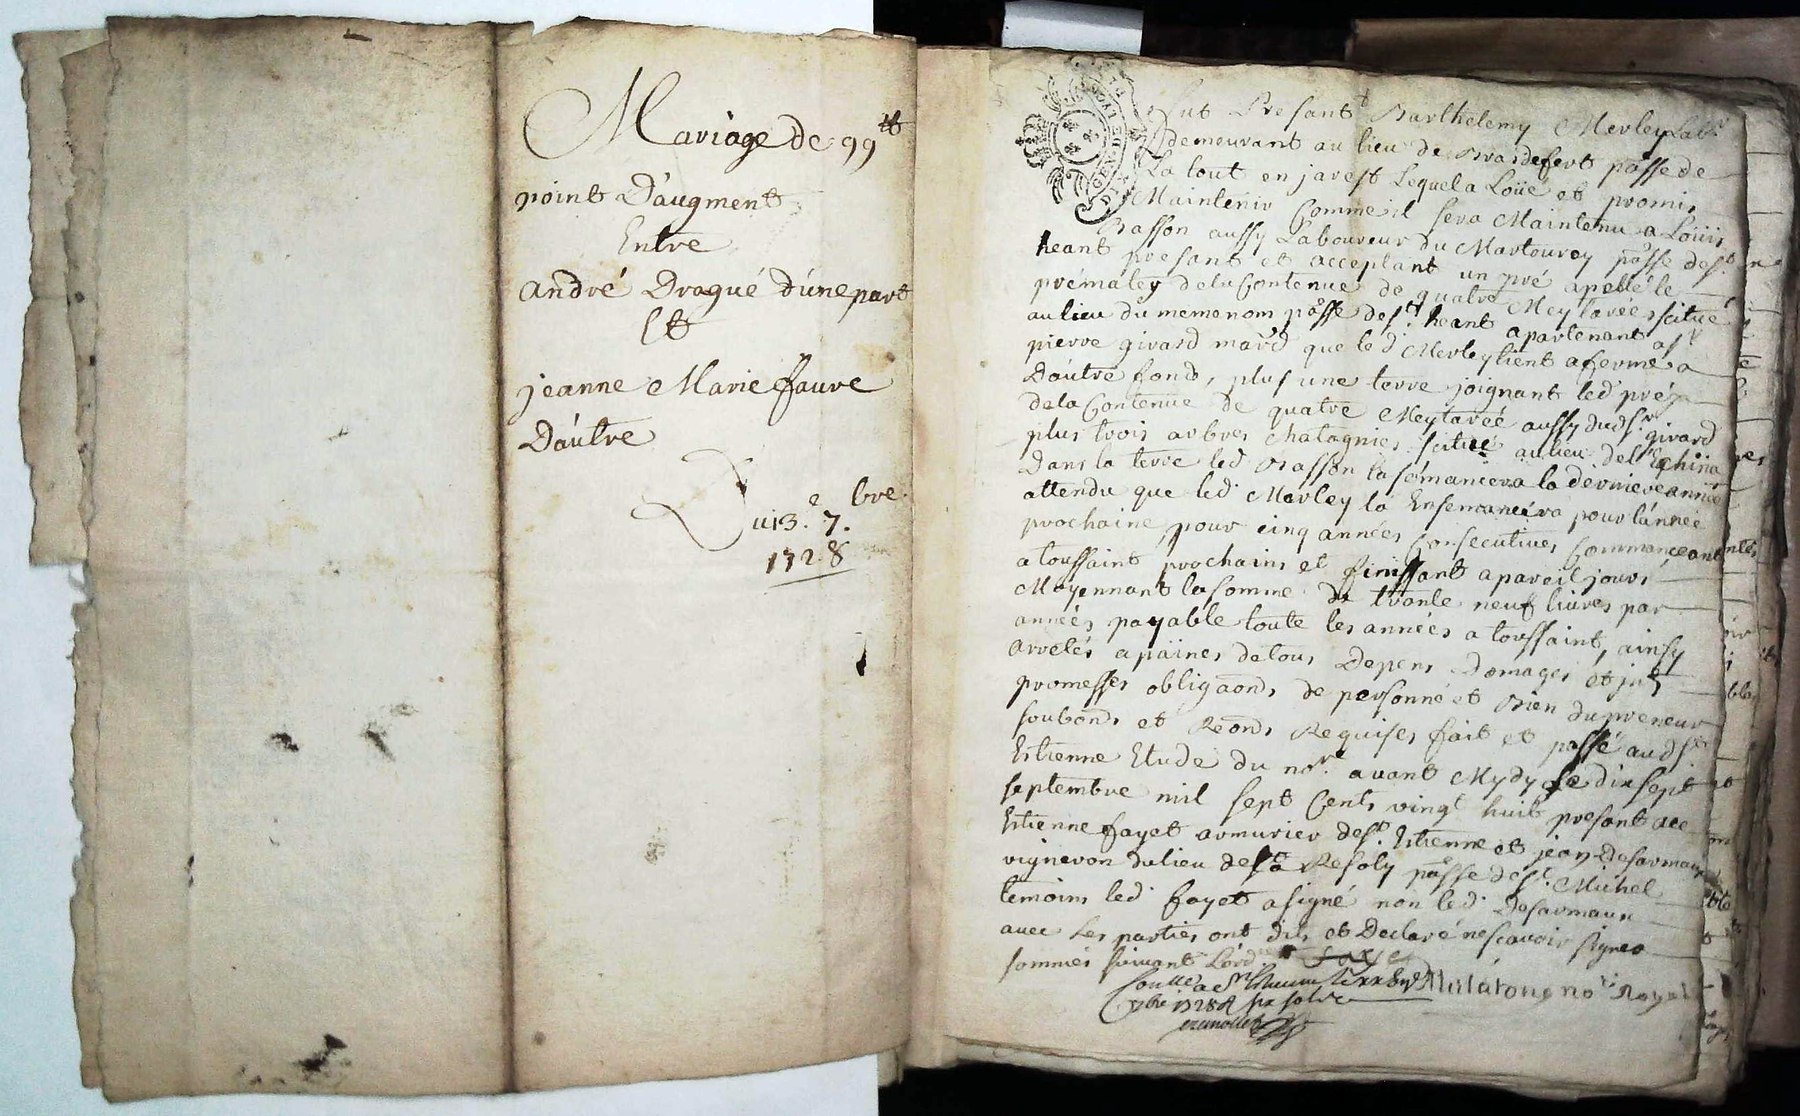 Mariage de 99tt
point D'augment
Entre
andré Dragué d'une part
Et
jeanne Marie faure
D'autre
Du 13.e 7.bre
1728
fut Presant Barthelemy Merley Labr
demeurant au lieu de Brasdefert pâsse de
La tout en jarest Lequel a Loüé et promis
Maintenir Comme il sera Maintenu a Loüis
Basson aussy Laboureur du Martourey pâsse de st
heant presant et acceptant un pré apellé le
prématey de la Contenue de quatre Meytarées scitué
au lieu du meme nom pâsse de st. heant apartenant a sr
pierre girard mard que le d Merley tient a ferme a
D'autre fond, plus une terre joignant led pré
de la Contenue de quatre Meytarée aussy dud sr. girard
plus trois arbres chatagnies scitué au lieu de l'Echina
Dans la terre led Basson la sémancera la derniere année
attendu que led. Merley la Ensemancéra pour l'année
prochaine, pour cinq années Consecutives Commanceant
a toussaint prochains et finissant a pareil jours
Moyennant la somme de trante neuf livres par
années payable toute les années a toussaint, ainsy
arretés a paines de tous Depens Domages et jnts
promesses obligaons de personne et Bien du preneur
soubons et Reons Requises fait et passé aud st
Estienne Etude du nore. avant Mydy le dix sept
septembre mil sept Cents vingt huit presant
Estienne fayet armurier de st. Estienne et jean Desarmaux
vigneron du lieu de la Resoly pâsse de st. Michel
temoins led. fayet a signé non led. Desarmaux
avec Les parties ont dits et Declaré ne scavoir signer
sommés suivant L'ord fayet
nore Royal
7bre 1728